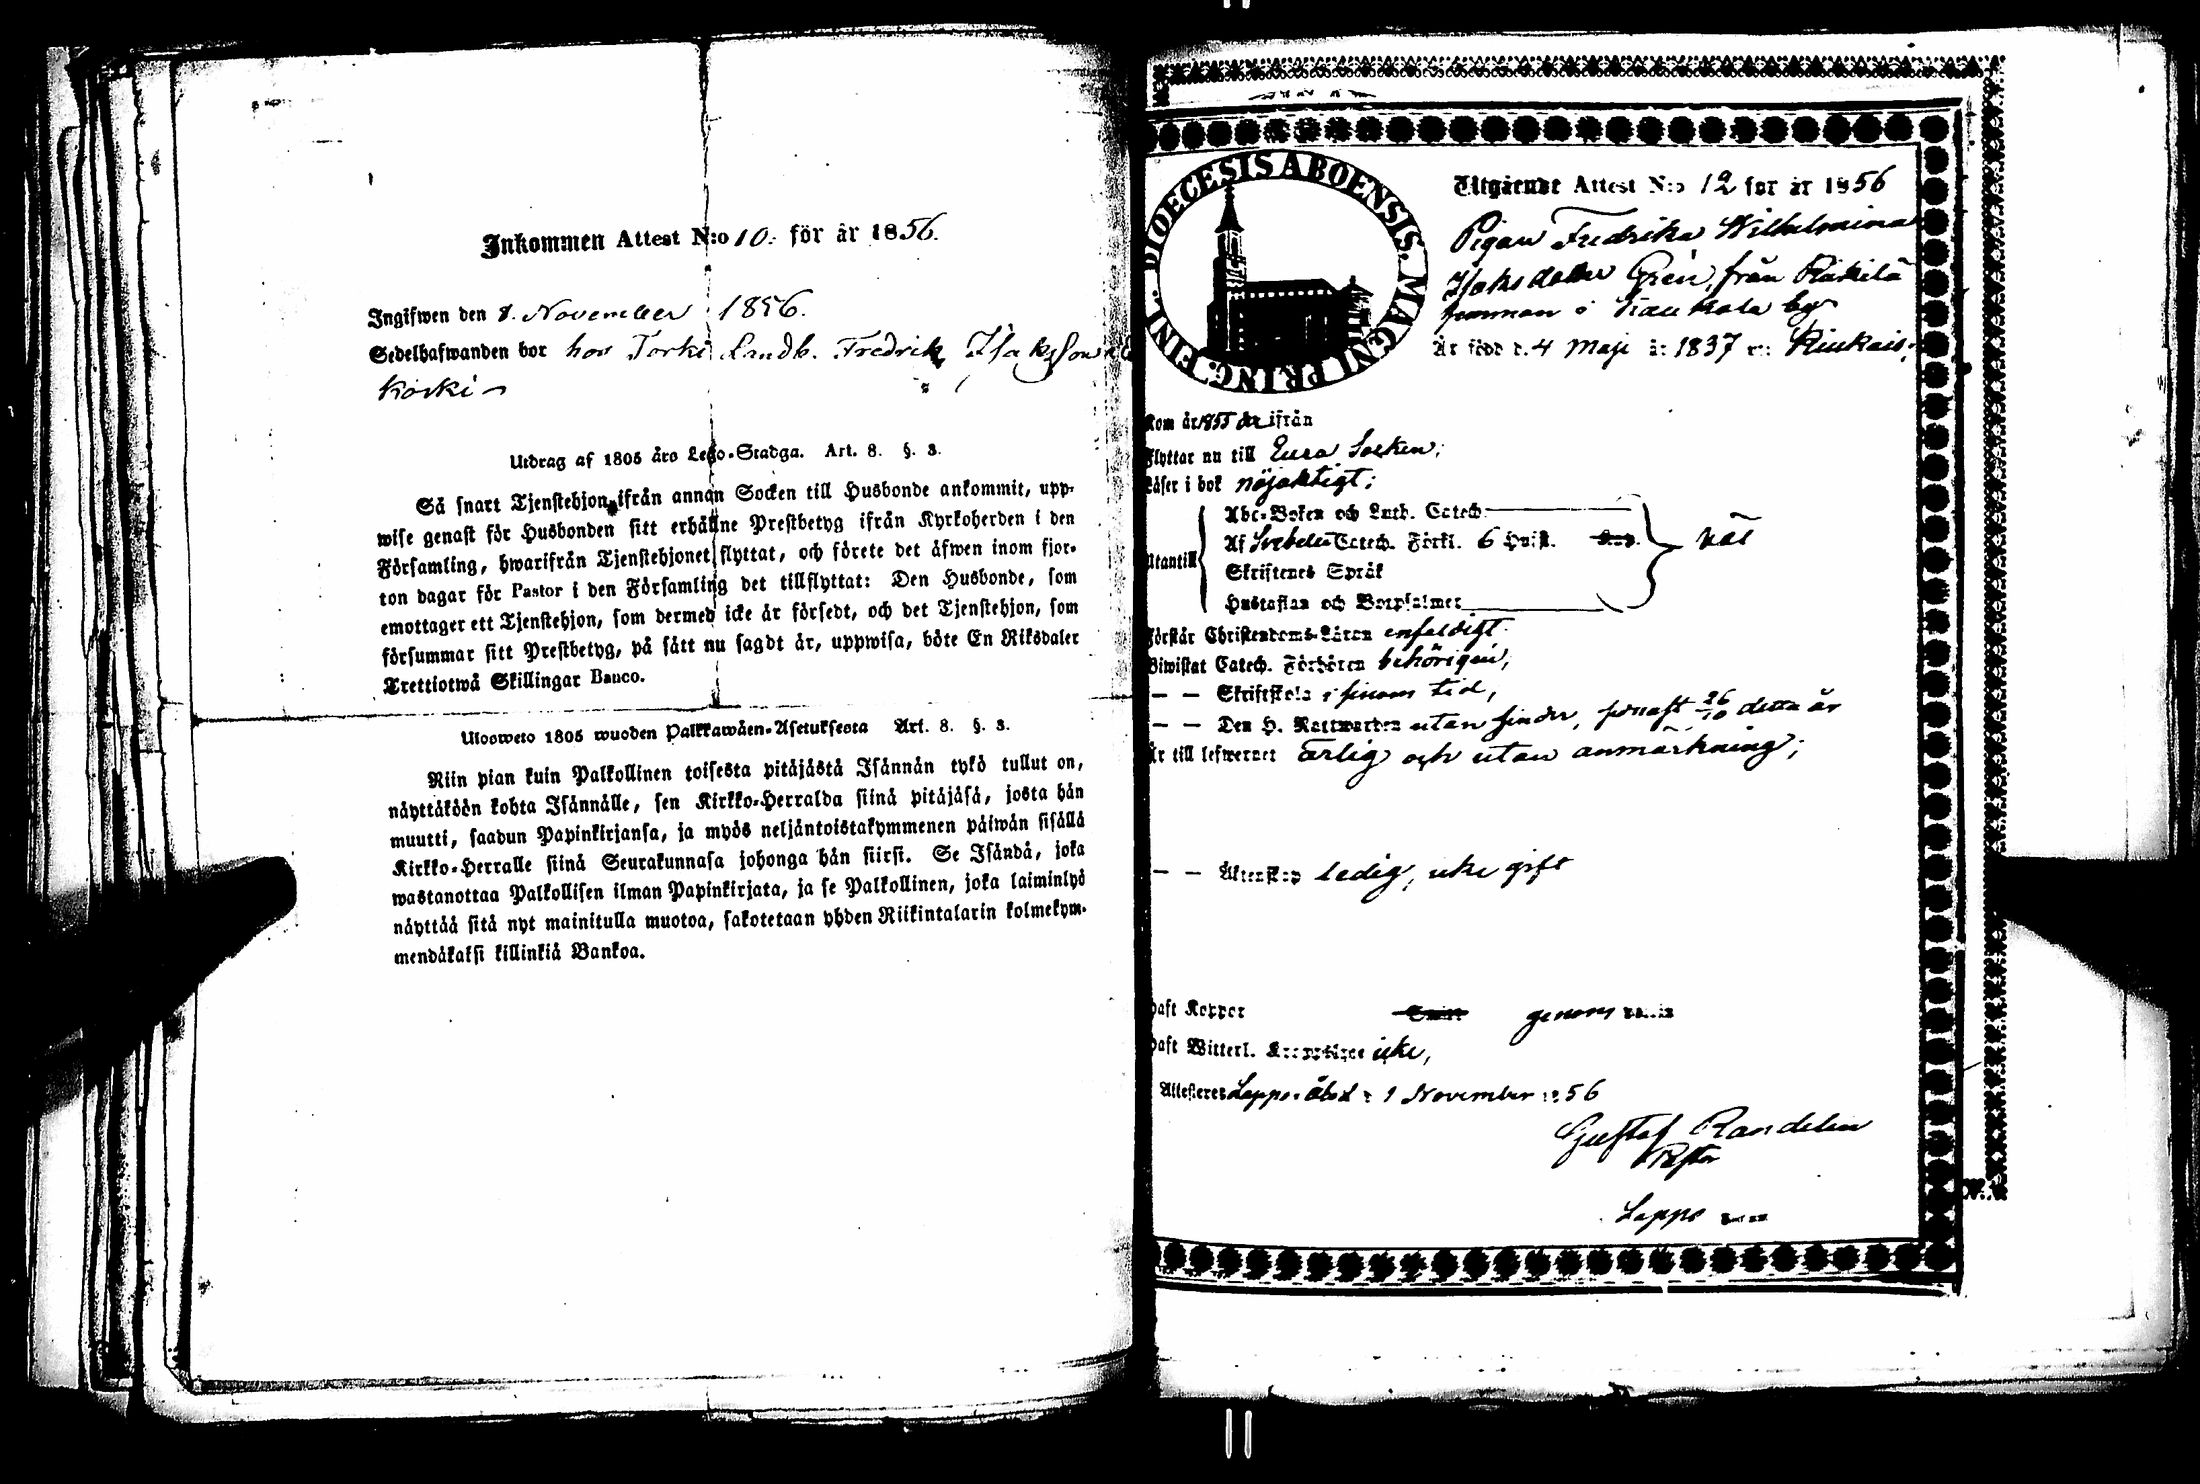 Inkommen Attest N:o 10. för år 1856.
Ingifwen den 8. November 1856.
Sedelhafwanden bor hos Torki Landb. Fredrik Isaksson
Korki
Utdrag af 1805 års Lego-Stadga. Art. 8. §. 3.
Så snart Tjenstehjon ifrån annan Socken till Husbonde ankommit, upp-
wise genast för Husbonden sitt erhållne Prestbetyg ifrån Kyrkoherden i den
Församling, hwarifrån Tjenstehjonet flyttat, och förete det äfwen inom fjor-
ton dagar för Pastor i den Församling det tillflyttat: Den Husbonde, som
emottager ett Tjenstehjon, som dermed icke är försedt, och det Tjenstehjon, som
försummar sitt Prestbetyg, på sätt nu sagdt är, uppwisa, böte En Riksdaler
Trettiotwå Skillingar Banco.
Ulosweto 1805 wuoden Palkkawäen-Asetuksesta Art. 8. §. 3.
Niin pian kuin Palkollinen toisesta pitäjästä Isännän tykö tullut on,
näyttäköön kohta Isännälle, sen Kirkko-Herralda siinä pitäjäsä, josta hän
muutti, saadun Papinkirjansa, ja myös neljäntoistakymmenen päiwän sisällä
Kirkko-Herralle siinä Seurakunnasa johonga hän siirsi. Se Isändä, joka
wastanottaa Palkollisen ilman Papinkirjata, ja se Palkollinen, joka laiminlyö
näyttää sitä nyt mainitulla muotoa, sakotetaan yhden Riikintalarin kolmekym-
mendäkaksi killinkiä Bankoa.
DIOECESIS ABOENSIS. MAGNI PRINC. FINL.
Utgående Attest N:o 12 för år 1856
Pigan Fredrika Wilhelmina
Isaksdotter Grén, från
i Kaukola by
Är född d. 4 Maji år 1837 i Kiukais.
Kom år 1855 ifrån
Flyttar nu till Eura Socken;
Läser i bok nöjaktigt;
Abc-Boken och Luth. Catech.
Utantill Af Svebelii Catech. Förkl. 6 Hufst. väl
Skriftenes Språk
Hustaflan och Botpsalmer
Förstår Christendoms-Läran enfaldigt
Biwistat Catech. Förhören behörigen;
— — Skriftskola i sinom tid,
— — Den H. Nattwarden utan hinder, senast 26/10 detta år
Är till lefwernet ärlig och utan anmärkning;
— — Äktenskap ledig, icke gift
Haft Koppor genom
Haft Witterl. icke,
Attesteras Lappo d. 1 November 1856
Gustaf Randelin
Pastor
Lappo